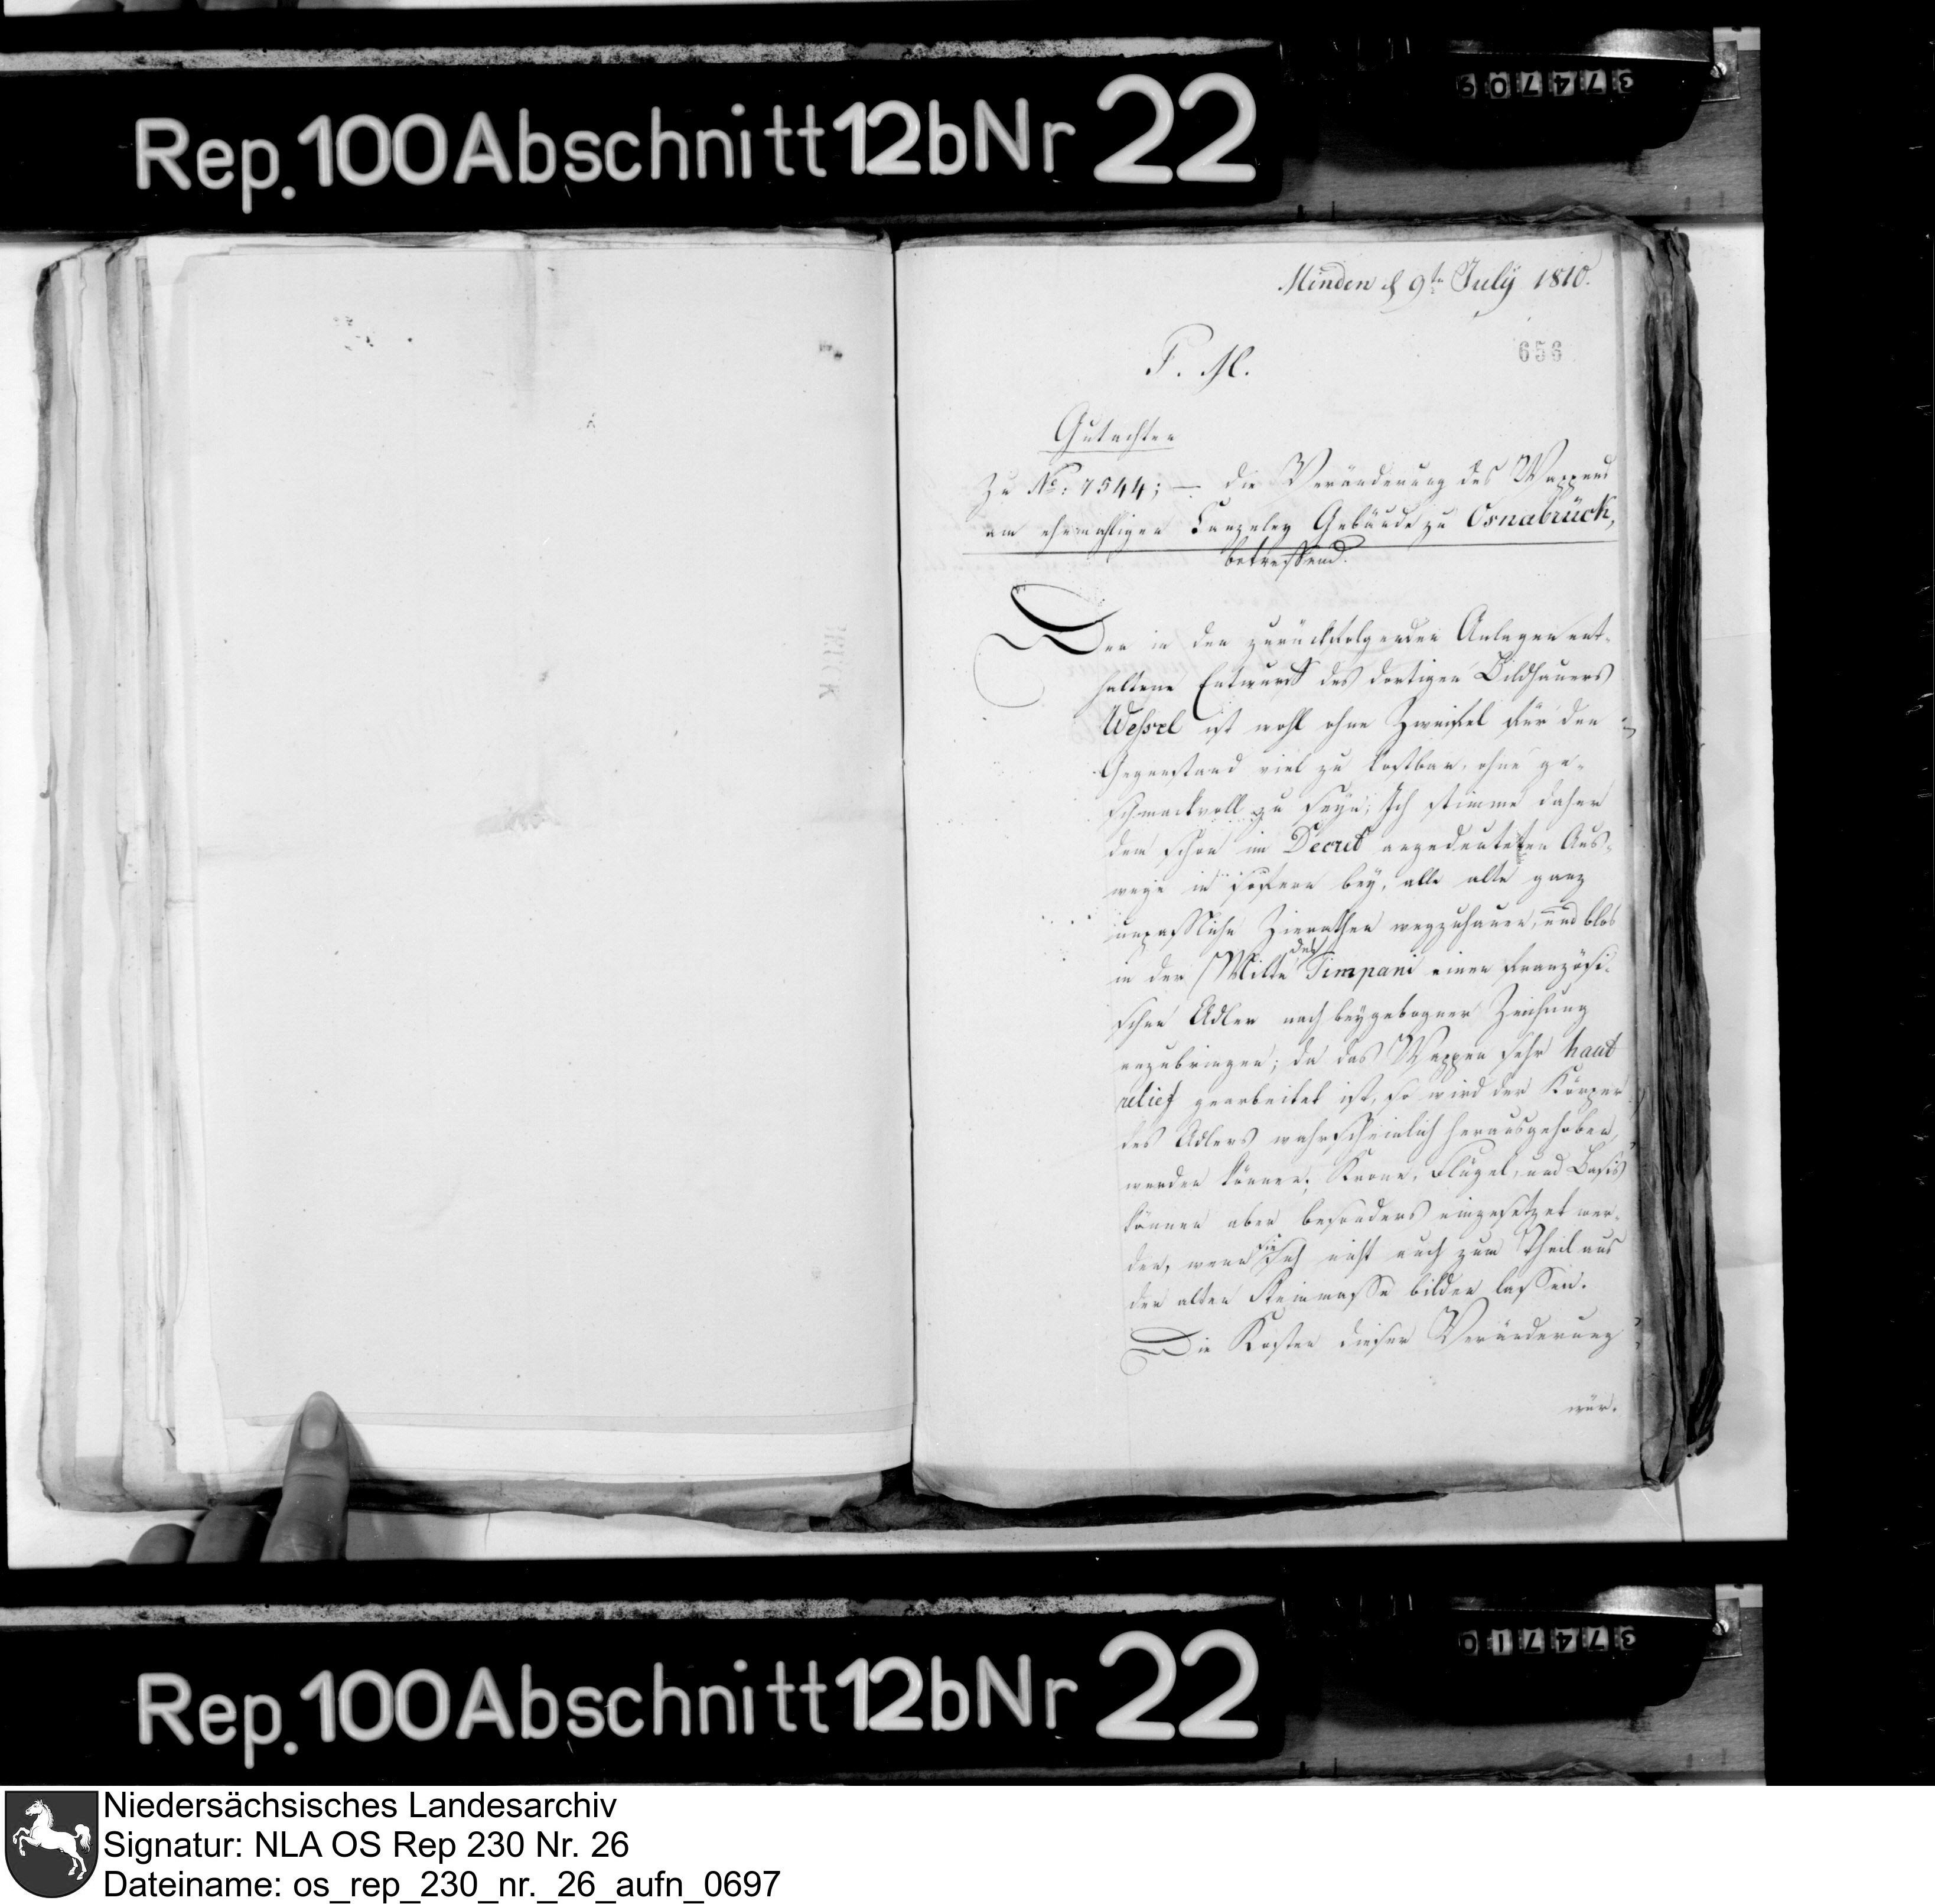 374709
Rep. 100 Abschnitt 12b Nr 22
Minden d 9ten July 1810.
656
P. M.
Gutachten
Zu No: 7544; — die Veränderung des Wappens
am ehemahligen Canzeley Gebäude zu Osnabrück,
betreffend.
Der in den zurückfolgenden Anlagen ent-
haltene Entwurf des dortigen Bildhauers
Wessel ist wohl ohne Zweifel für den
Gegenstand viel zu kostbar, ohne ge-
schmackvoll zu seyn; Ich stimme daher
dem schon im Decret angedeuteten Aus-
wege in sofern bey, alle alte ganz
unpassliche Zierathen wegzuhauen, und blos
in der Mitte des Timpani einen französi-
schen Adler nach beygebogner Zeichung
anzubringen; da das Wappen sehr haut
relief gearbeitet ist, so wird der Körper
des Adlers wahrscheinlich herausgehoben
werden können; Krone, Flügel, und Basis
können aber besonders eingesetzet wer-
den, wenn sie sich nicht auch zum Theil aus
der alten Steinmasse bilden lassen.
Die Kosten dieser Veränderung
wür-
374710
Rep. 100 Abschnitt 12b Nr 22
Niedersächsisches Landesarchiv
Signatur: NLA OS Rep 230 Nr. 26
Dateiname: os_rep_230_nr._26_aufn_0697